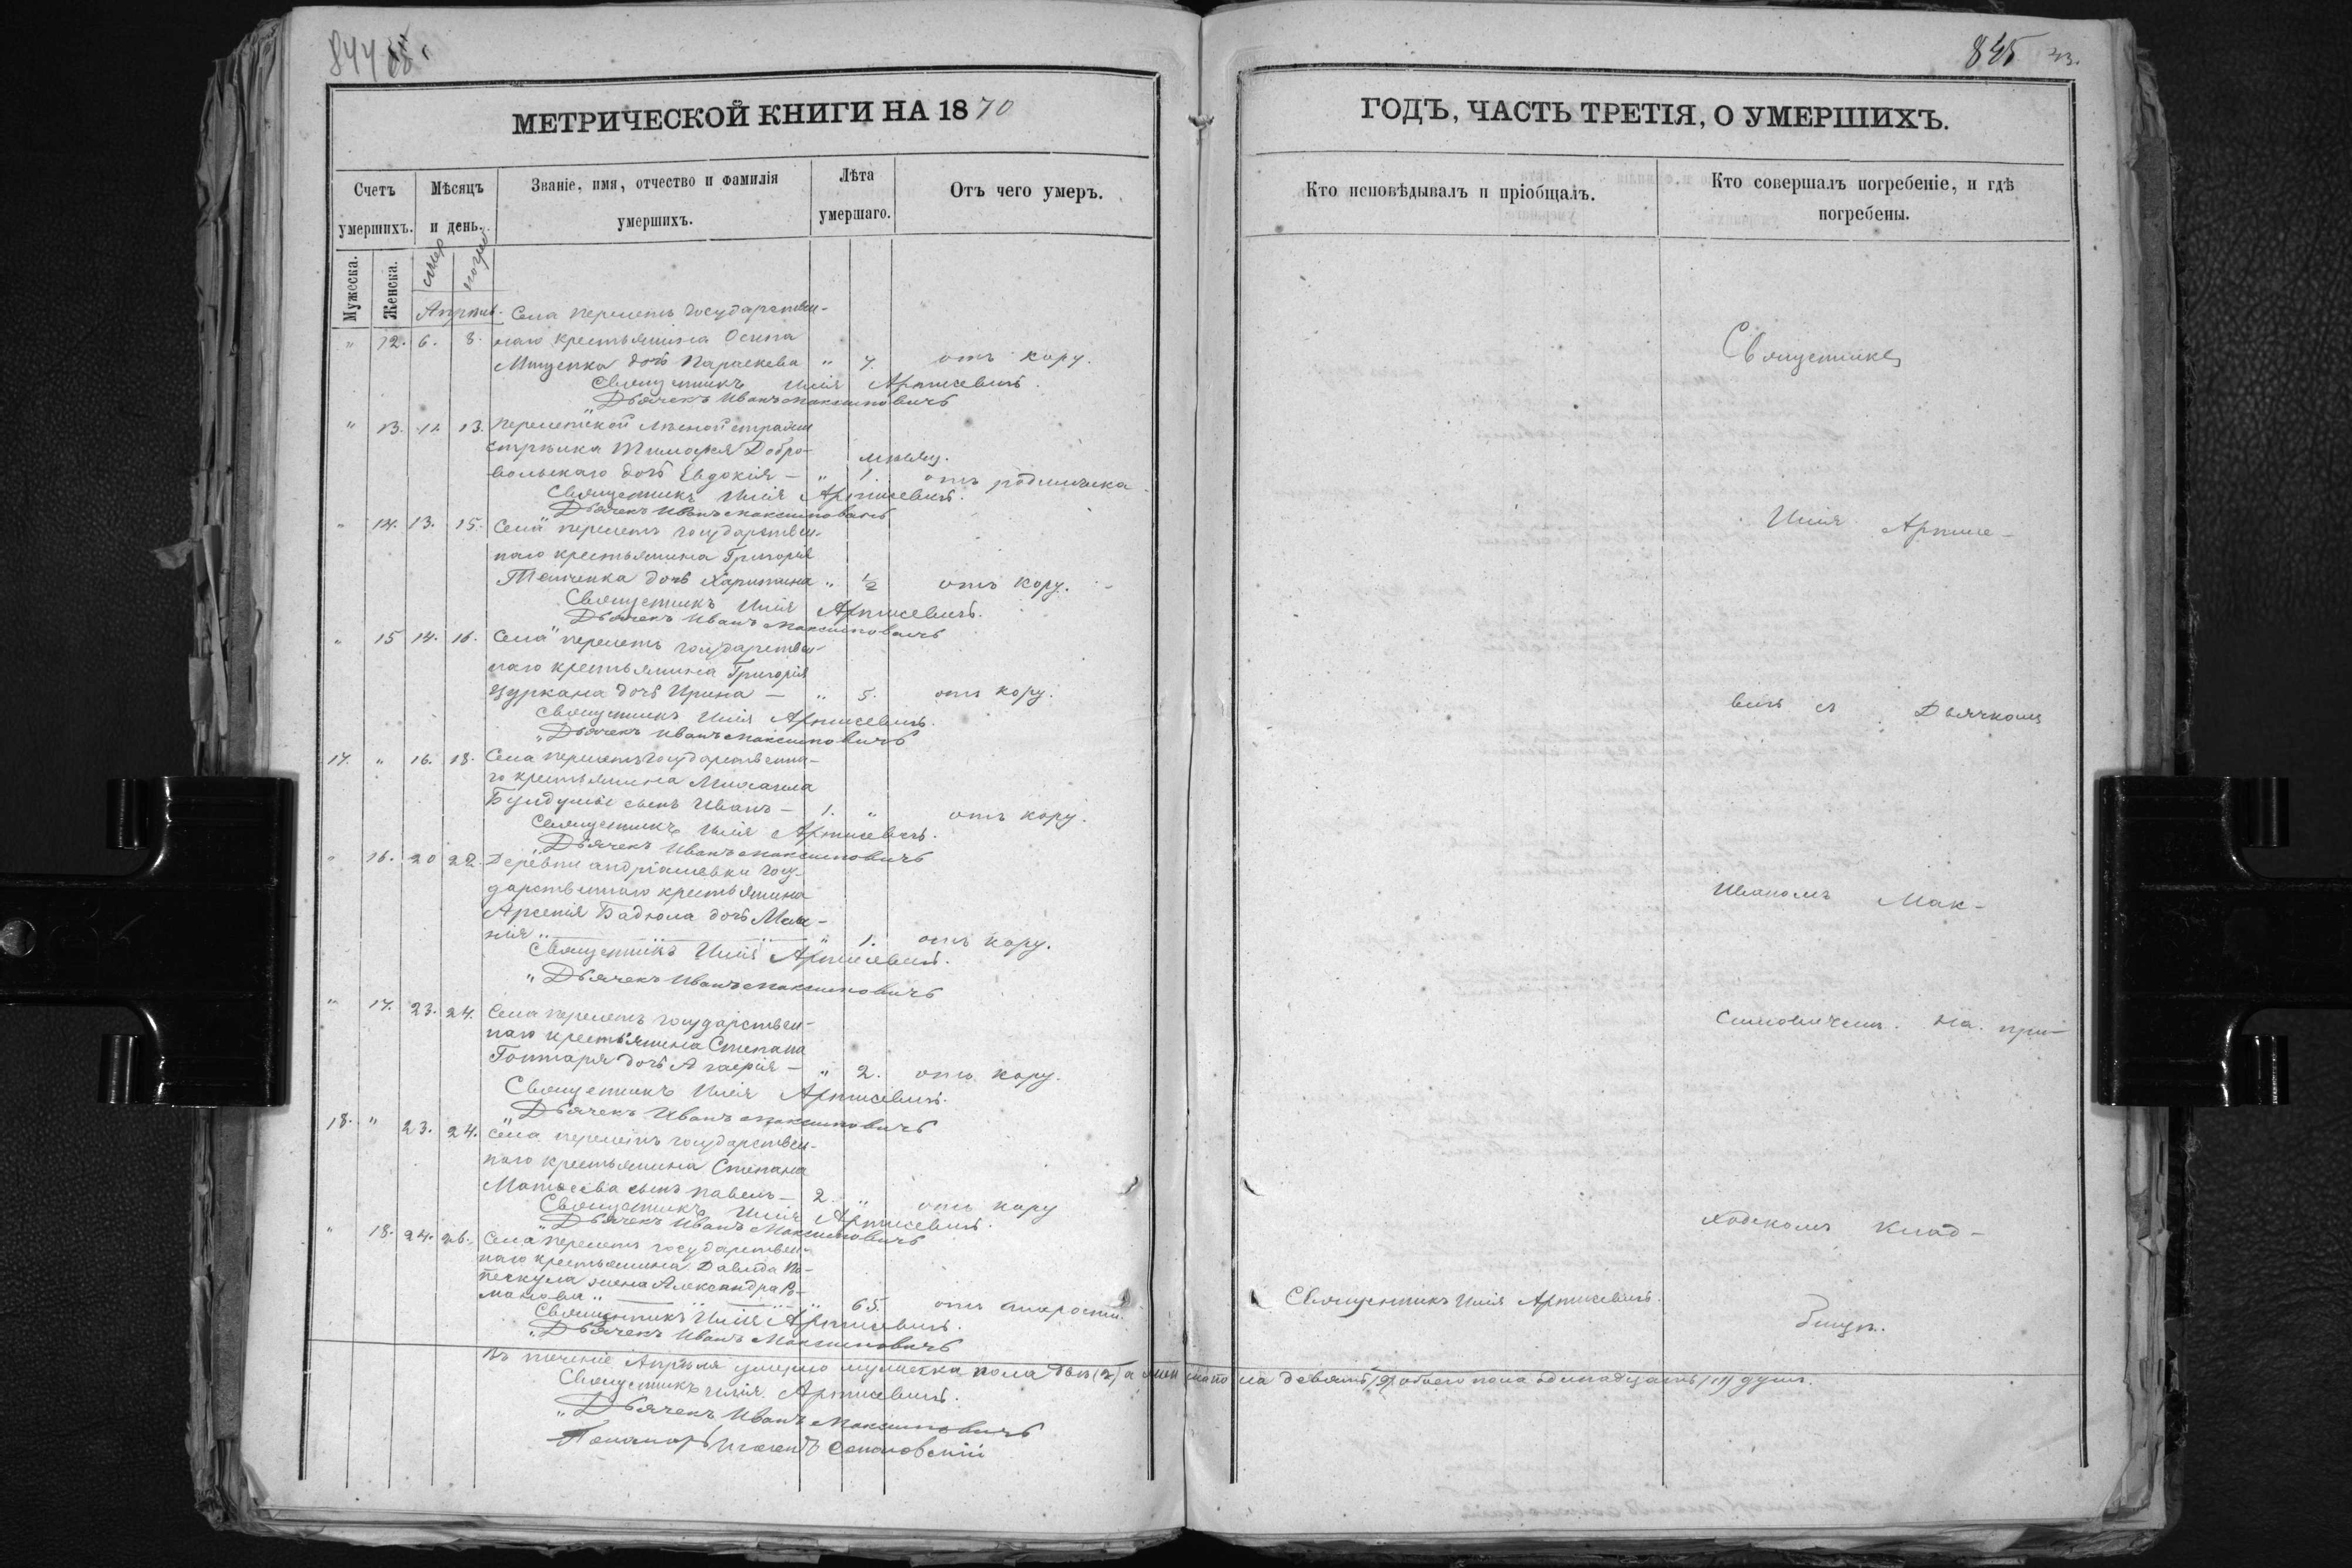 844
МЕТРИЧЕСКОЙ КНИГИ НА 1870
Счетъ умершихъ.
Мѣсяцъ и день.
Званіе, имя, отчество и фамилія умершихъ.
Лѣта умершаго.
Отъ чего умеръ.
Мужеска.
Женска.
Села Перелетъ Государствен-
" 12. 6. 8. наго крестьянина Осипа
дочь Параскева " 4. отъ кору.
Священникъ Илія Артисевичъ.
Дьячекъ Иванъ Максимовичъ
" 13. 13. стражи
стрѣлка Тимофея Добро-
вольскаго дочь Евдокія — " 1. отъ родимчика
Священникъ Илія Артисевичъ.
Дьячекъ Иванъ Максимовичъ
" 14. 13. 15. Села Перелетъ государствен-
наго крестьянина Григорія
дочь Харитина " ½ отъ кору.
Священникъ Илія Артисевичъ.
Дьячекъ Иванъ Максимовичъ
" 15 14. 16. Села Перелетъ государствен-
наго крестьянина Григорія
Цуркана дочь Ирина — " 5. отъ кору.
Священникъ Илія Артисевичъ.
Дьячекъ Иванъ Максимовичъ
17. " 16. 18. Села Перелетъ Государственна-
го крестьянина Михаила
сынъ Иванъ — 1. " отъ кору.
Священникъ Илія Артисевичъ.
Дьячекъ Иванъ Максимовичъ
" 16. 20 22. Деревни Андріяшевки госу-
дарственнаго крестьянина
Арсенія Бадюла дочь Мела-
нія " 1. отъ кору.
Священникъ Илія Артисевичъ.
Дьячекъ Иванъ Максимовичъ
" 17. 23. 24. Села Перелетъ государствен-
наго крестьянина Степана
Гонтаря дочь Агафія — " 2. отъ кору.
Священникъ Илія Артисевичъ.
Дьячекъ Иванъ Максимовичъ
18. " 23. 24. Села Перелетъ государствен-
наго крестьянина Степана
Матвеева сынъ Павелъ — 2 " отъ кору
Священникъ Илія Артисевичъ.
Дьячекъ Иванъ Максимовичъ
" 18. 24. 26. Села Перелетъ государствен-
наго крестьянина Давида По-
пескула жена Александра Ро-
манова " 65. отъ старости.
Священникъ Илія Артисевичъ.
Дьячекъ Иванъ Максимовичъ
Въ теченіе Апрѣля умерло мужеска пола два (2) а девять (9) обоего пола одинадцать (11) душъ.
Священникъ Илія Артисевичъ.
Дьячекъ Иванъ Максимовичъ
Пономарь
845
ГОДЪ, ЧАСТЬ ТРЕТІЯ, О УМЕРШИХЪ.
Кто исповѣдывалъ и пріобщалъ.
Кто совершалъ погребеніе, и гдѣ погребены.
Священникъ
Илія Артисе-
вичъ съ Дьячкомъ
Иваномъ Мак-
симовичемъ. на при-
ходскомъ клад-
Священникъ Илія Артисевичъ.
бищѣ.